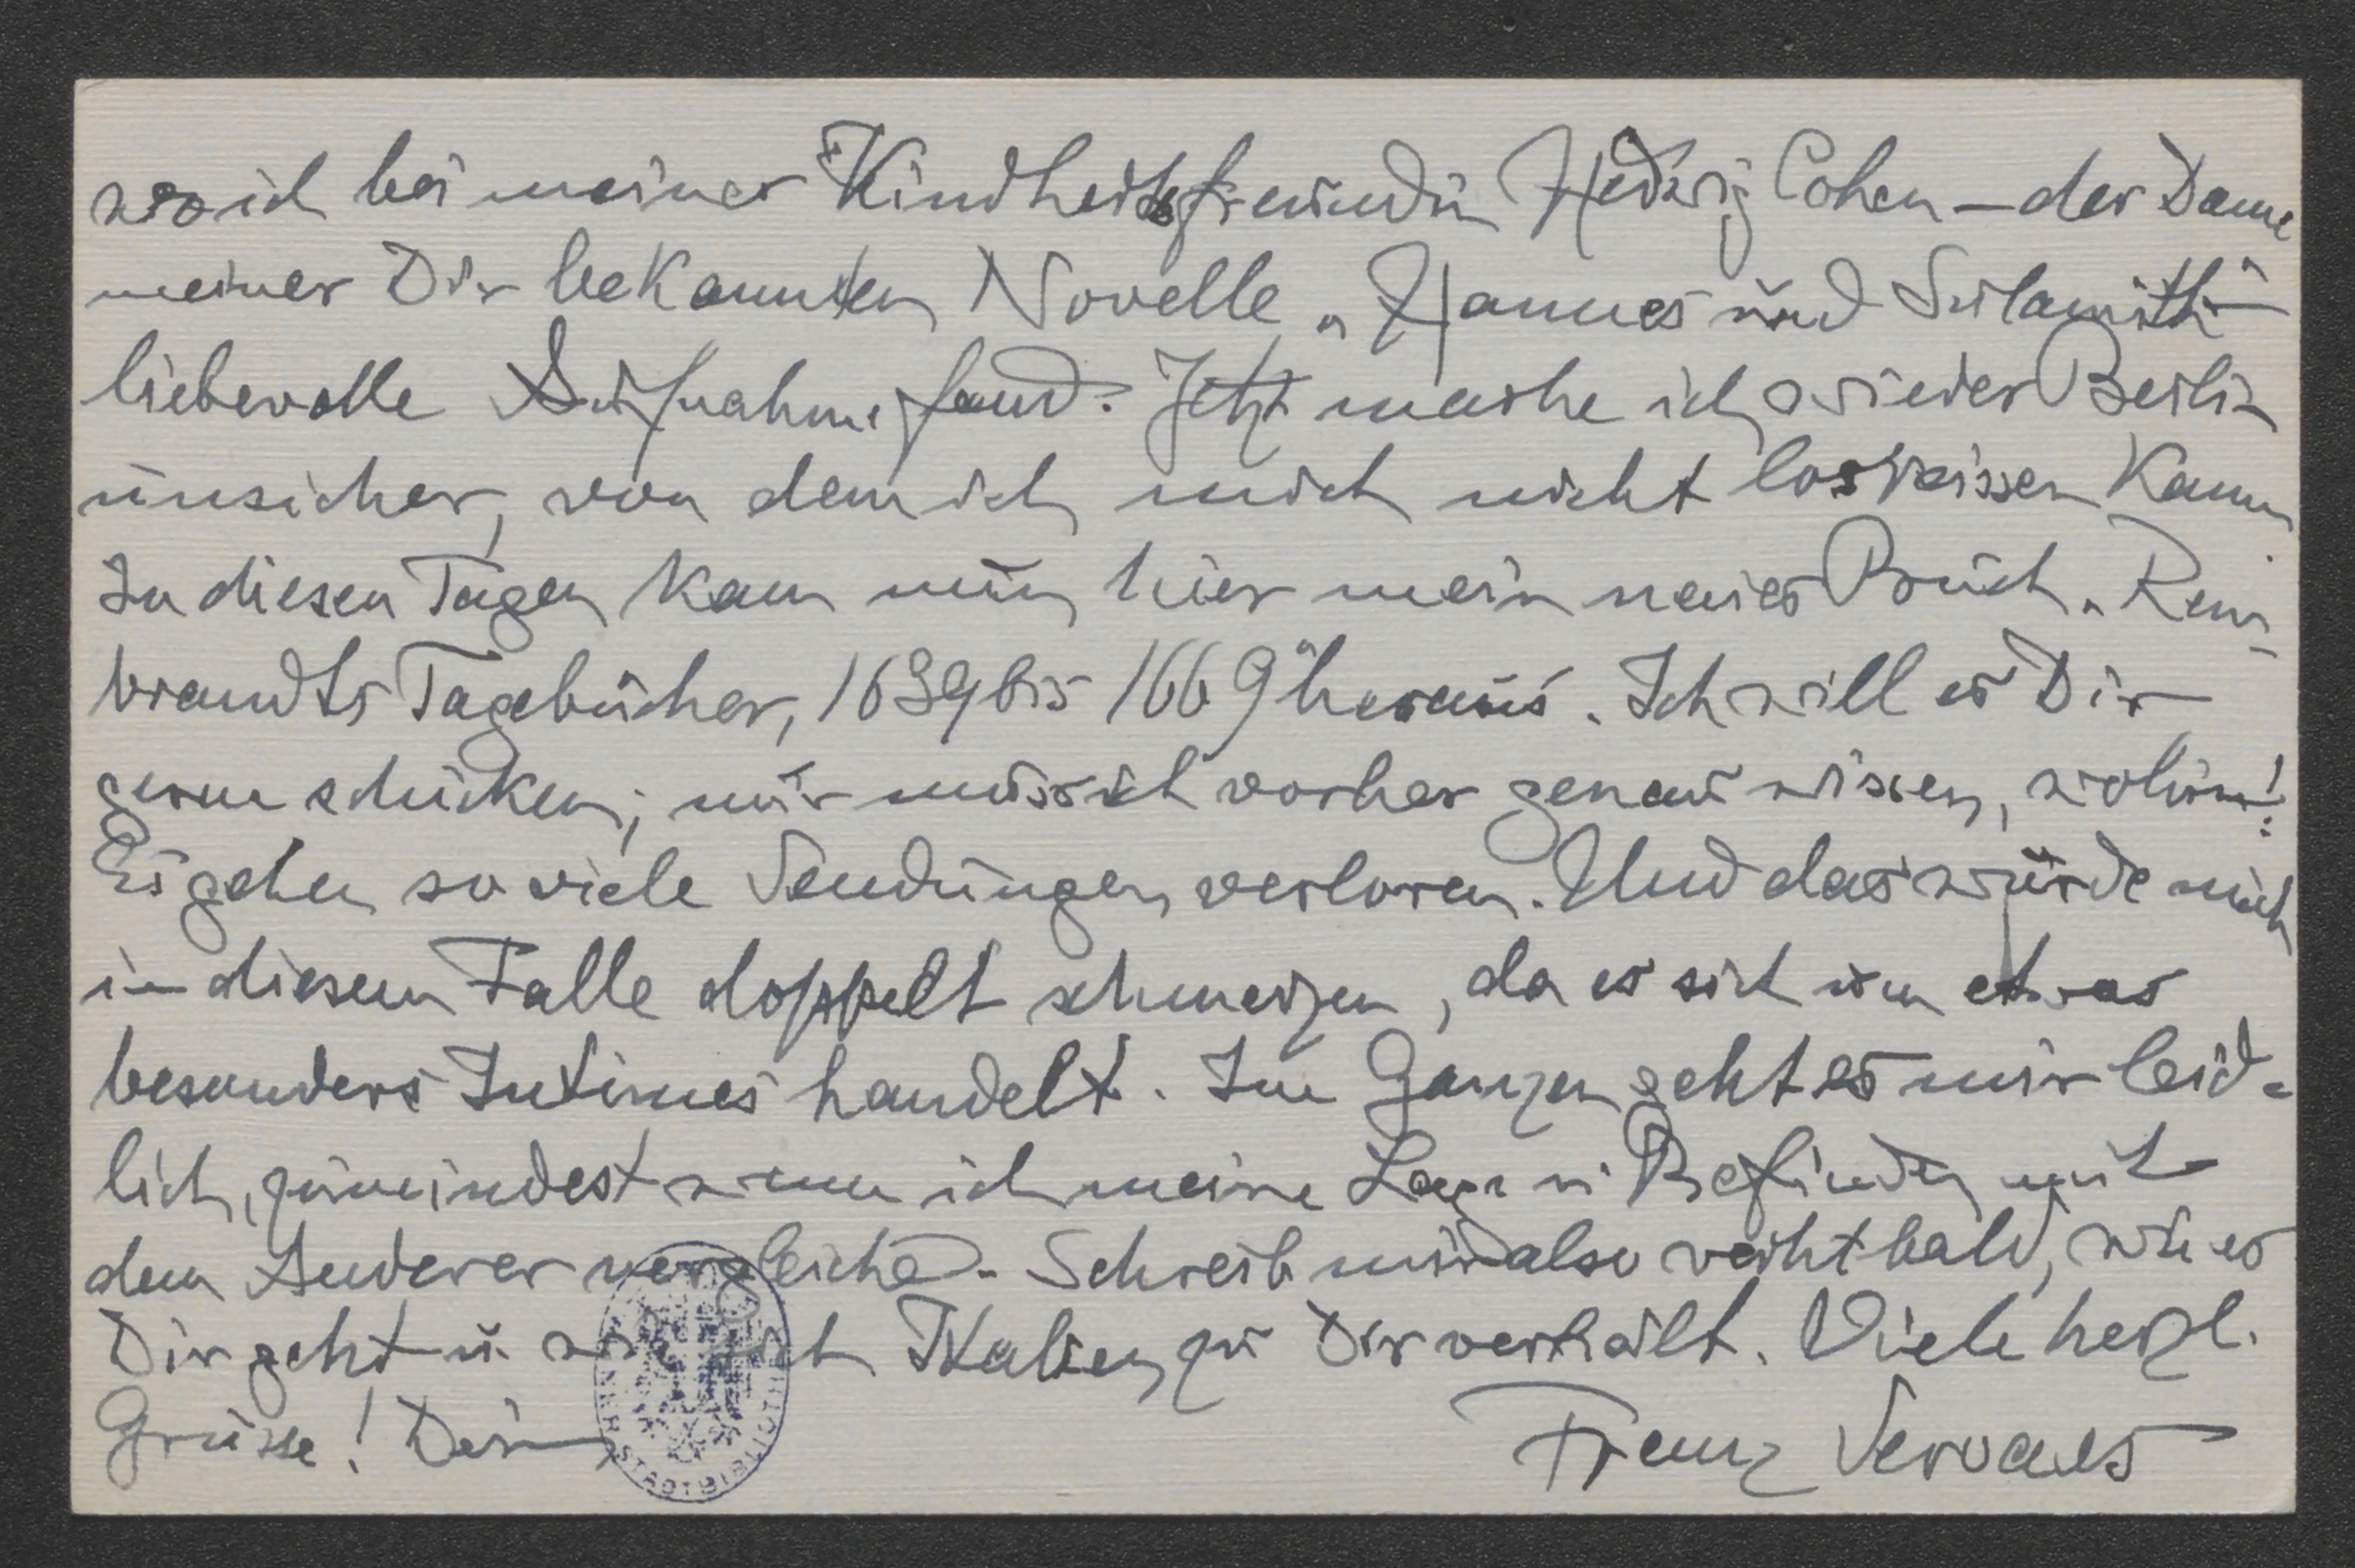 wo ich bei meiner Kindheitsfreundin Hedwig Cohen – der Dame
meiner Dir bekannten Novelle „Hannes und Sulamith"–
liebevolle Aufnahme fand. Jetzt mache ich wieder Berlin
unsicher, von dem ich mich nicht losreissen kann.
In diesen Tagen kam nun hier mein neues Buch „Rem-
brandts Tagebücher, 1639 bis 1669" heraus. Ich will es Dir
gerne schicken; nur muss ich vorher genau wissen, wohin!
Es gehen so viele Sendungen verloren. Und das würde mich
in diesem Falle doppelt schmerzen, da es sich um etwas
besonders Intimes handelt. Im Ganzen geht es mir leid-
lich, zumindest wenn ich meine Lage u. Befinden mit
dem Anderer vergleiche. – Schreib mir also recht bald, wie es
Dir geht u. wie sich Italien zu Dir verhält. Viele herzl.
Grüsse! Dein
Franz Servaes
STADTBIBLIOTHEK